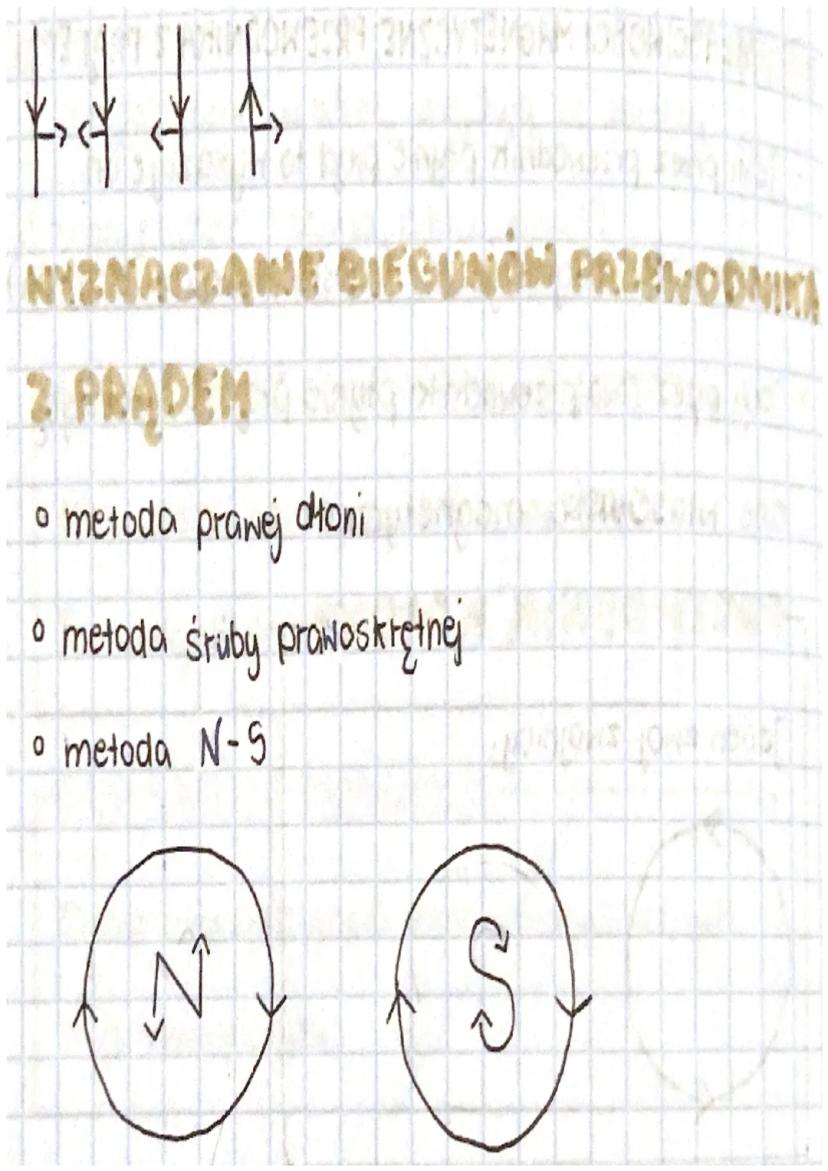 WYZNACZANIE BIEGUNÓW PRZEWODNIKA
Z PRĄDEM
metoda prawej dłoni
metoda śruby prawoskrętnej
metoda N-S
N S